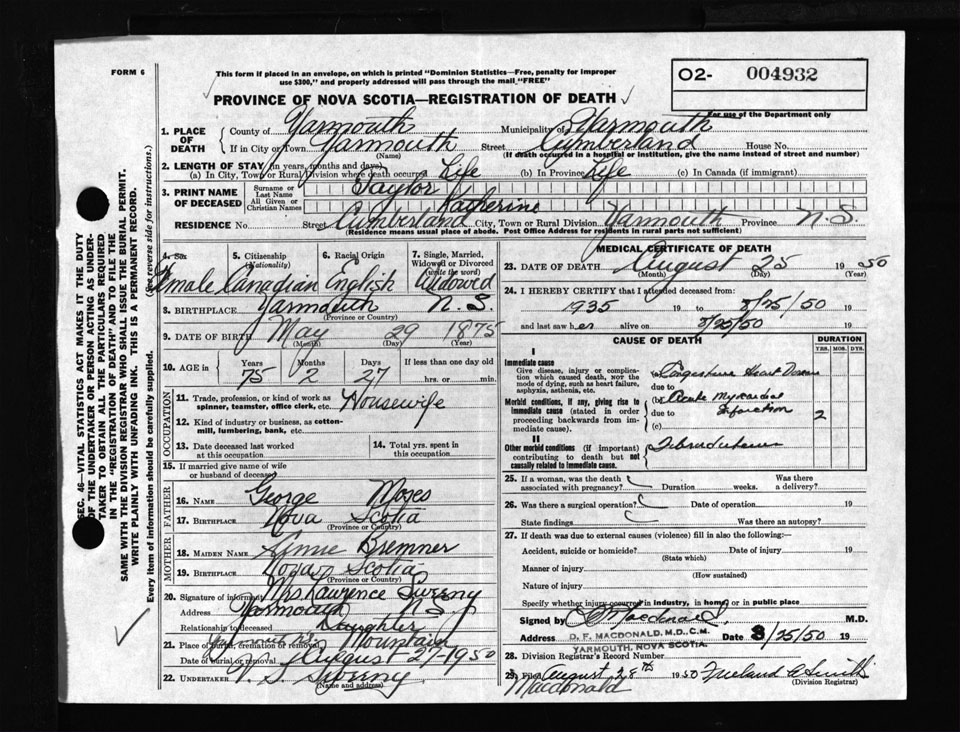 FORM 6
This form if placed in an envelope, on which is printed "Dominion Statistics—Free, penalty for improper
use $300," and properly addressed will pass through the mail "FREE"
O2- 004932
For use of the Department only
PROVINCE OF NOVA SCOTIA—REGISTRATION OF DEATH
1. PLACE OF DEATH
County of Yarmouth Municipality of Yarmouth
If in City or Town Yarmouth Street Cumberland House No.
(Name) (If death occurred in a hospital or institution, give the name instead of street and number)
2. LENGTH OF STAY (in years, months and days)
(a) In City, Town or Rural Division where death occurred Life (b) In Province Life (c) In Canada (if immigrant)
3. PRINT NAME OF DECEASED
Surname or Last Name Taylor
All Given or Christian Names Katherine
RESIDENCE No. Street Cumberland City, Town or Rural Division Yarmouth Province N.S.
(Residence means usual place of abode. Post Office Address for residents in rural parts not sufficient)
4. Sex 5. Citizenship (Nationality) 6. Racial Origin 7. Single, Married, Widowed or Divorced (write the word)
Female Canadian English Widowed
8. BIRTHPLACE Yarmouth N.S.
(Province or Country)
9. DATE OF BIRTH May 29 1875
(Month) (Day) (Year)
10. AGE in Years Months Days If less than one day old
75 2 27 hrs. or min.
OCCUPATION
11. Trade, profession or kind of work as spinner, teamster, office clerk, etc. Housewife
12. Kind of industry or business, as cotton-mill, lumbering, bank, etc.
13. Date deceased last worked at this occupation
14. Total yrs. spent in this occupation
15. If married give name of wife or husband of deceased
FATHER
16. NAME George Moses
17. BIRTHPLACE Nova Scotia
(Province or Country)
MOTHER
18. MAIDEN NAME Annie Bremner
19. BIRTHPLACE Nova Scotia
(Province or Country)
20. Signature of informant Mrs Lawrence Sweeny
Address Yarmouth N.S.
Relationship to deceased Daughter
21. Place of burial, cremation or removal Mountain
Date of burial or removal August 27-1950
22. UNDERTAKER V. S. Sweeny
(Name and address)
MEDICAL CERTIFICATE OF DEATH
23. DATE OF DEATH August 25 1950
(Month) (Day) (Year)
24. I HEREBY CERTIFY that I attended deceased from:
1935 19 to 8/25/50 19
and last saw her alive on 8/25/50 19
CAUSE OF DEATH DURATION
YRS. MOS. DYS.
I
Immediate cause
Give disease, injury or complication which caused death, NOT the mode of dying, such as heart failure, asphyxia, asthenia, etc.
(a) Congestive Heart Disease
due to
Morbid conditions, if any, giving rise to immediate cause (stated in order proceeding backwards from immediate cause).
(b) Acute Myocardial
due to Infarction 2
(c)
II
Other morbid conditions (if important) contributing to death but not causally related to immediate cause.
25. If a woman, was the death associated with pregnancy? Duration weeks. Was there a delivery?
26. Was there a surgical operation? Date of operation 19
State findings Was there an autopsy?
27. If death was due to external causes (violence) fill in also the following:—
Accident, suicide or homicide? Date of injury 19
(State which)
Manner of injury
(How sustained)
Nature of injury
Specify whether injury occurred in industry, in home or in public place
Signed by D F Macdonald M.D.
Address D. F. MACDONALD, M.D., C.M. Date 8/25/50 19
YARMOUTH, NOVA SCOTIA.
28. Division Registrar's Record Number
29. Filed August 28th 1950
Macdonald (Division Registrar)
SEC. 46—VITAL STATISTICS ACT MAKES IT THE DUTY
OF THE UNDERTAKER OR PERSON ACTING AS UNDER-
TAKER TO OBTAIN ALL THE PARTICULARS REQUIRED
IN THE "REGISTRATION OF DEATH" AND TO FILE THE
SAME WITH THE DIVISION REGISTRAR WHO SHALL ISSUE THE BURIAL PERMIT.
WRITE PLAINLY WITH UNFADING INK. THIS IS A PERMANENT RECORD.
Every item of information should be carefully supplied. (See reverse side for instructions.)